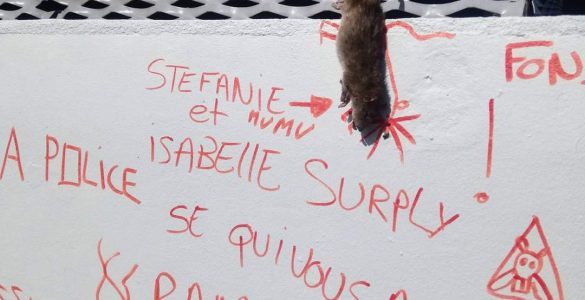 FON
STEFANIE
et MUMU
ISABELLE SURPLY !
A POLICE
SE QUI VOUS A